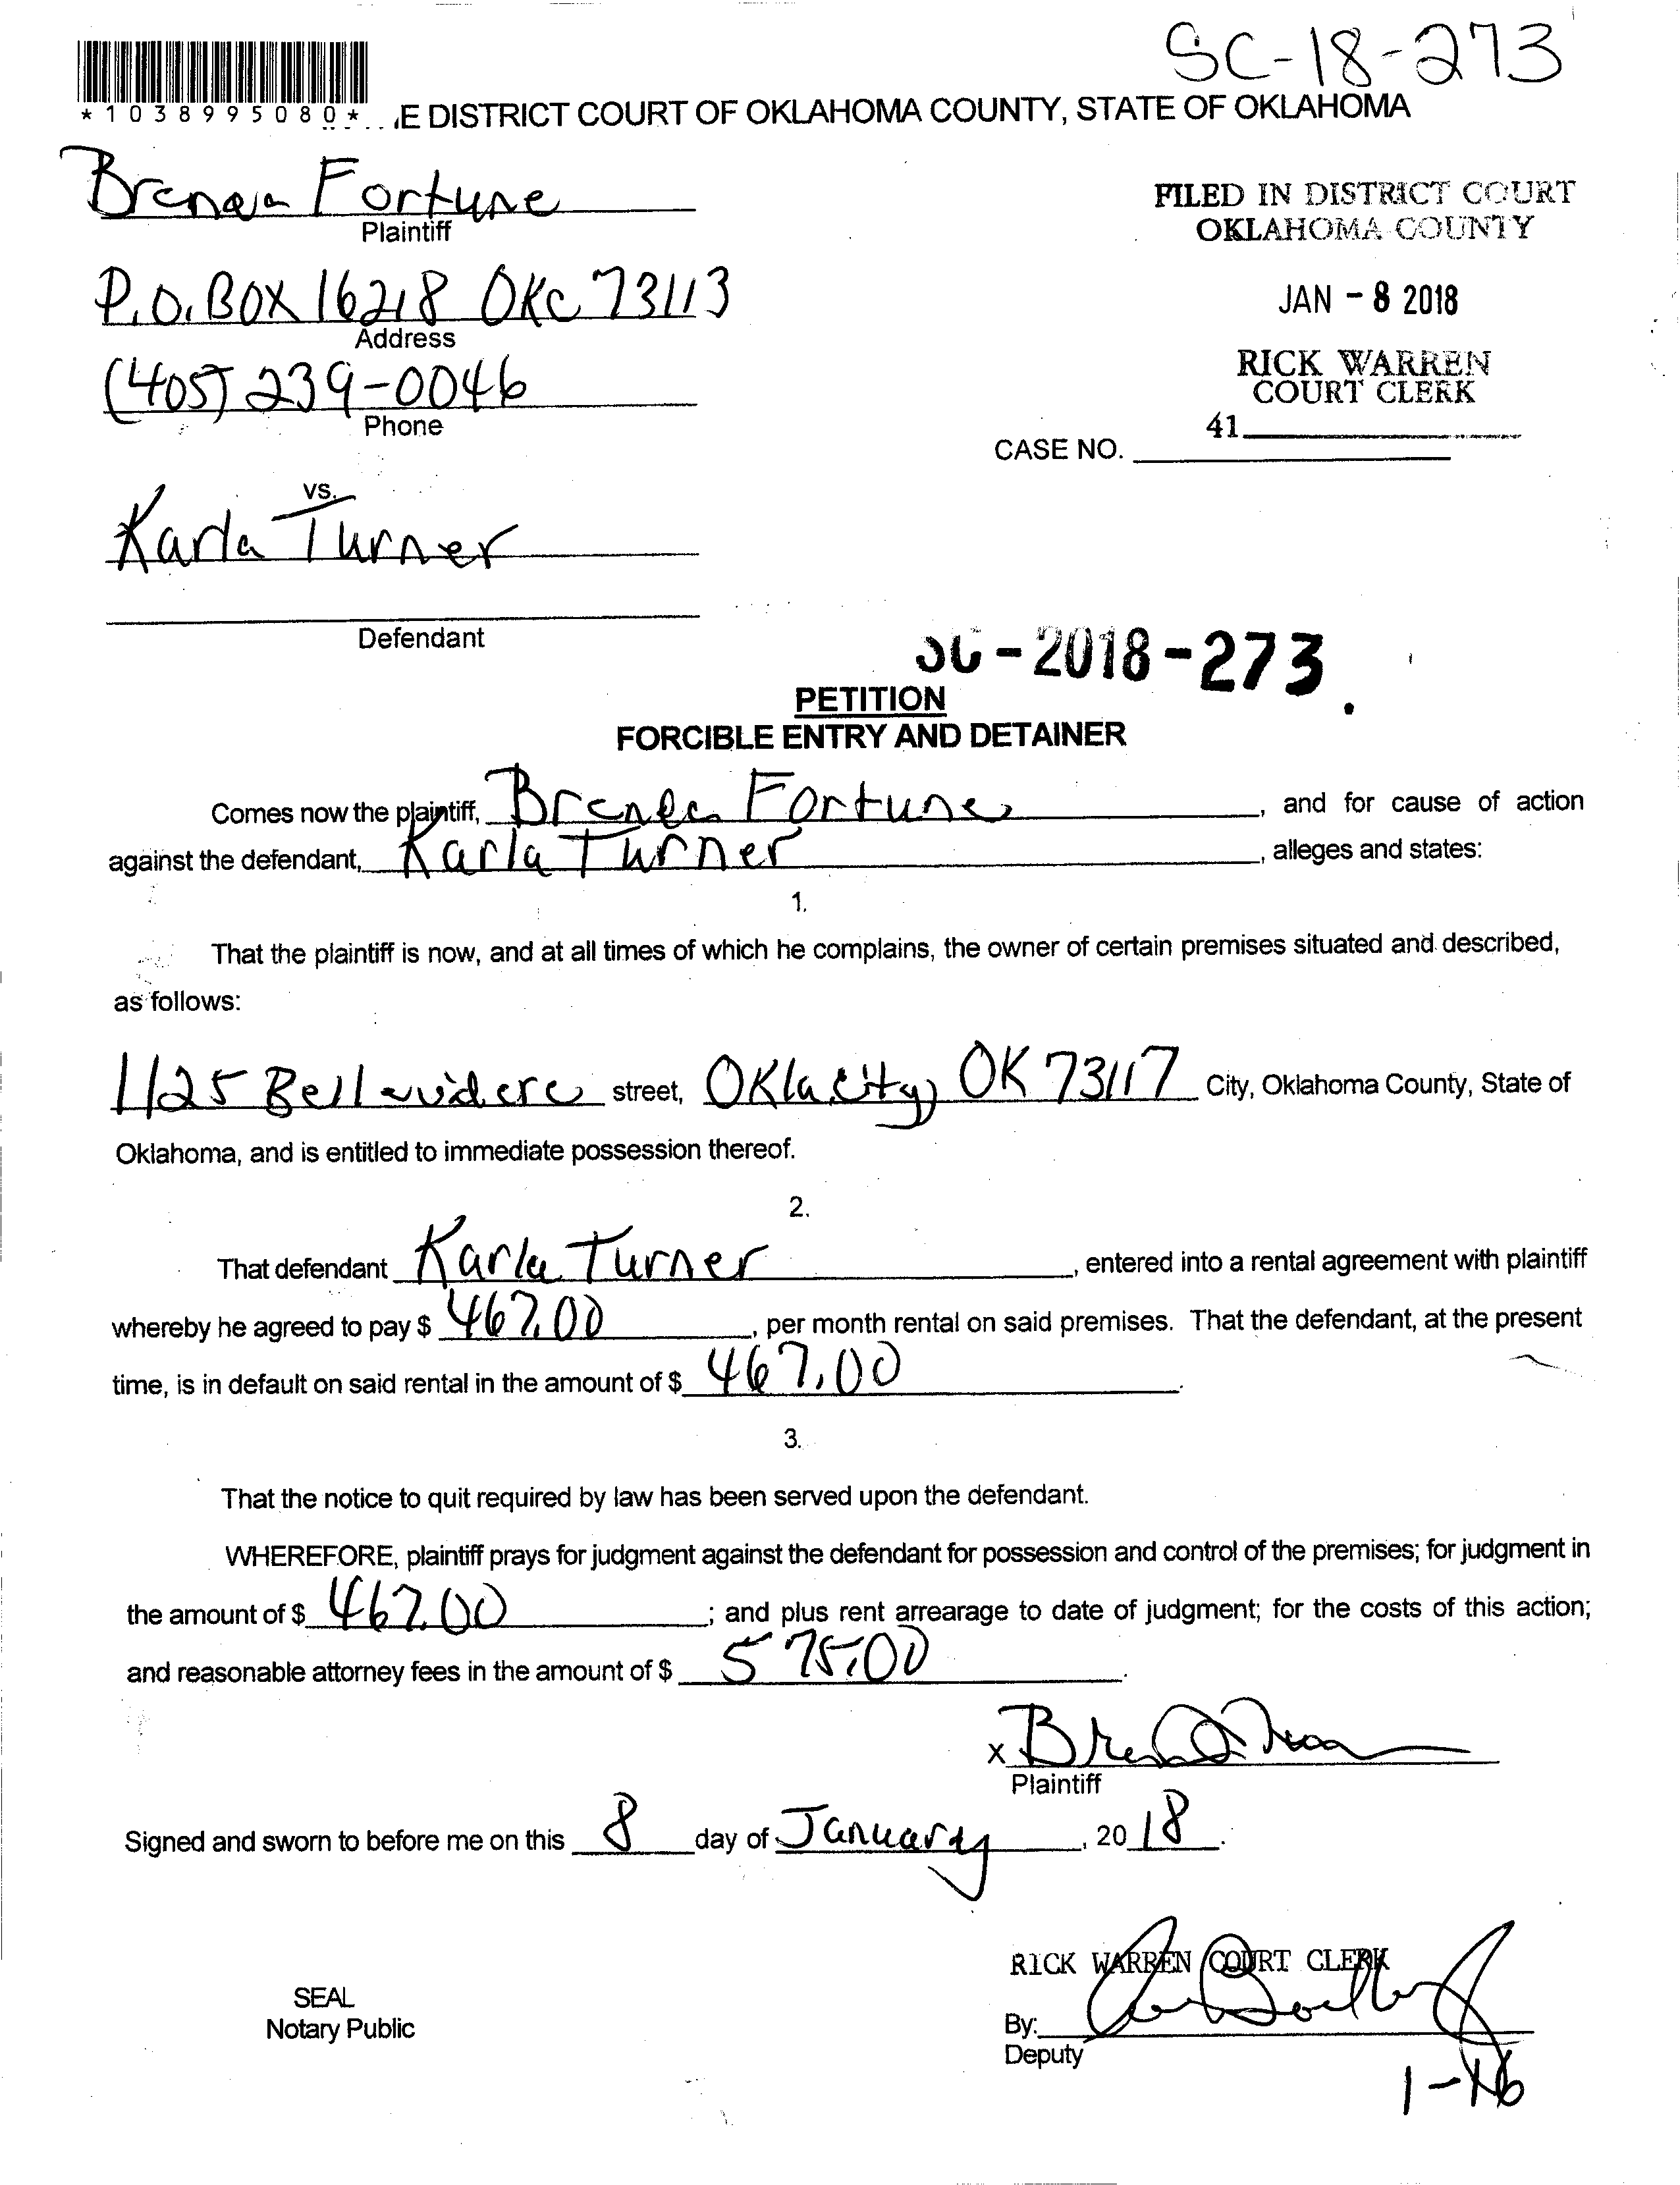 SC-18-273
*1038995080*
E DISTRICT COURT OF OKLAHOMA COUNTY, STATE OF OKLAHOMA
Fortune
Plaintiff
FILED IN DISTRICT COURT
OKLAHOMA COUNTY
P.O. BOX 16218 OKC 73113
Address
JAN - 8 2018
(405) 239-0046
Phone
RICK WARREN
COURT CLERK
41
CASE NO.
vs.
Karla Turner
Defendant
SC - 2018 - 273
PETITION
FORCIBLE ENTRY AND DETAINER
Comes now the plaintiff, Fortune, and for cause of action
against the defendant, Karla Turner, alleges and states:
1.
That the plaintiff is now, and at all times of which he complains, the owner of certain premises situated and described,
as follows:
1125 street, Okla City, OK 73117 City, Oklahoma County, State of
Oklahoma, and is entitled to immediate possession thereof.
2.
That defendant Karla Turner, entered into a rental agreement with plaintiff
whereby he agreed to pay $ 467.00, per month rental on said premises. That the defendant, at the present
time, is in default on said rental in the amount of $ 467.00.
3.
That the notice to quit required by law has been served upon the defendant.
WHEREFORE, plaintiff prays for judgment against the defendant for possession and control of the premises; for judgment in
the amount of $ 467.00; and plus rent arrearage to date of judgment; for the costs of this action;
and reasonable attorney fees in the amount of $ 575.00.
X
Plaintiff
Signed and sworn to before me on this 8 day of January, 20 18.
RICK WARREN COURT CLERK
SEAL
Notary Public
By:
Deputy
1-16